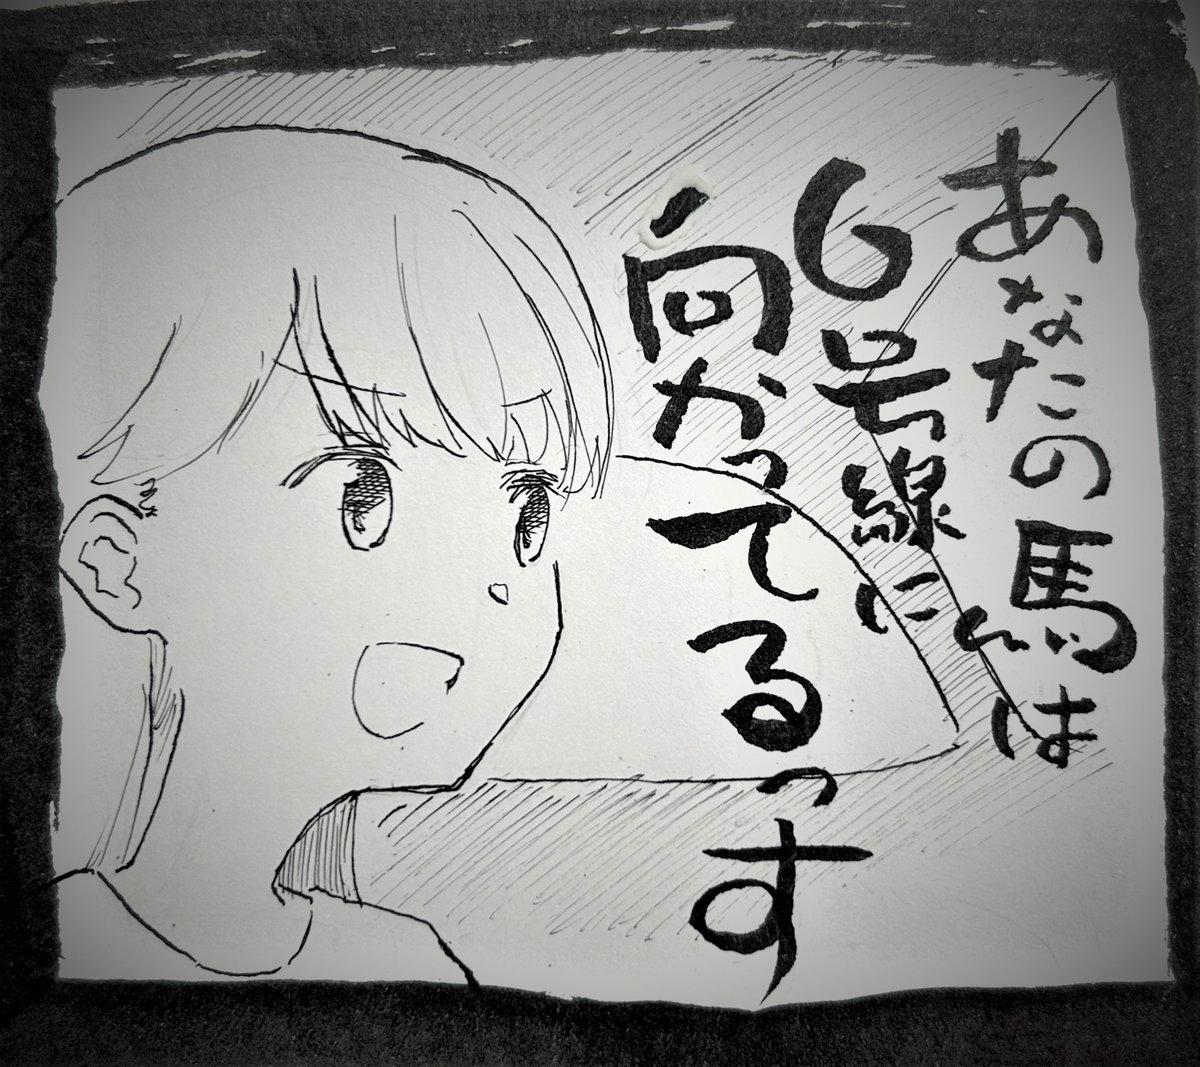 あなたの馬は
6号線に
向かってるっす